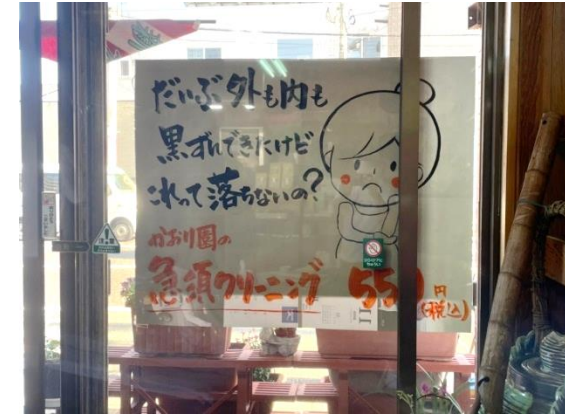 だいぶ外も内も
黒ずんできたけど
これって落ちないの?
かおり園の
急須クリーニング 550円
(税込)